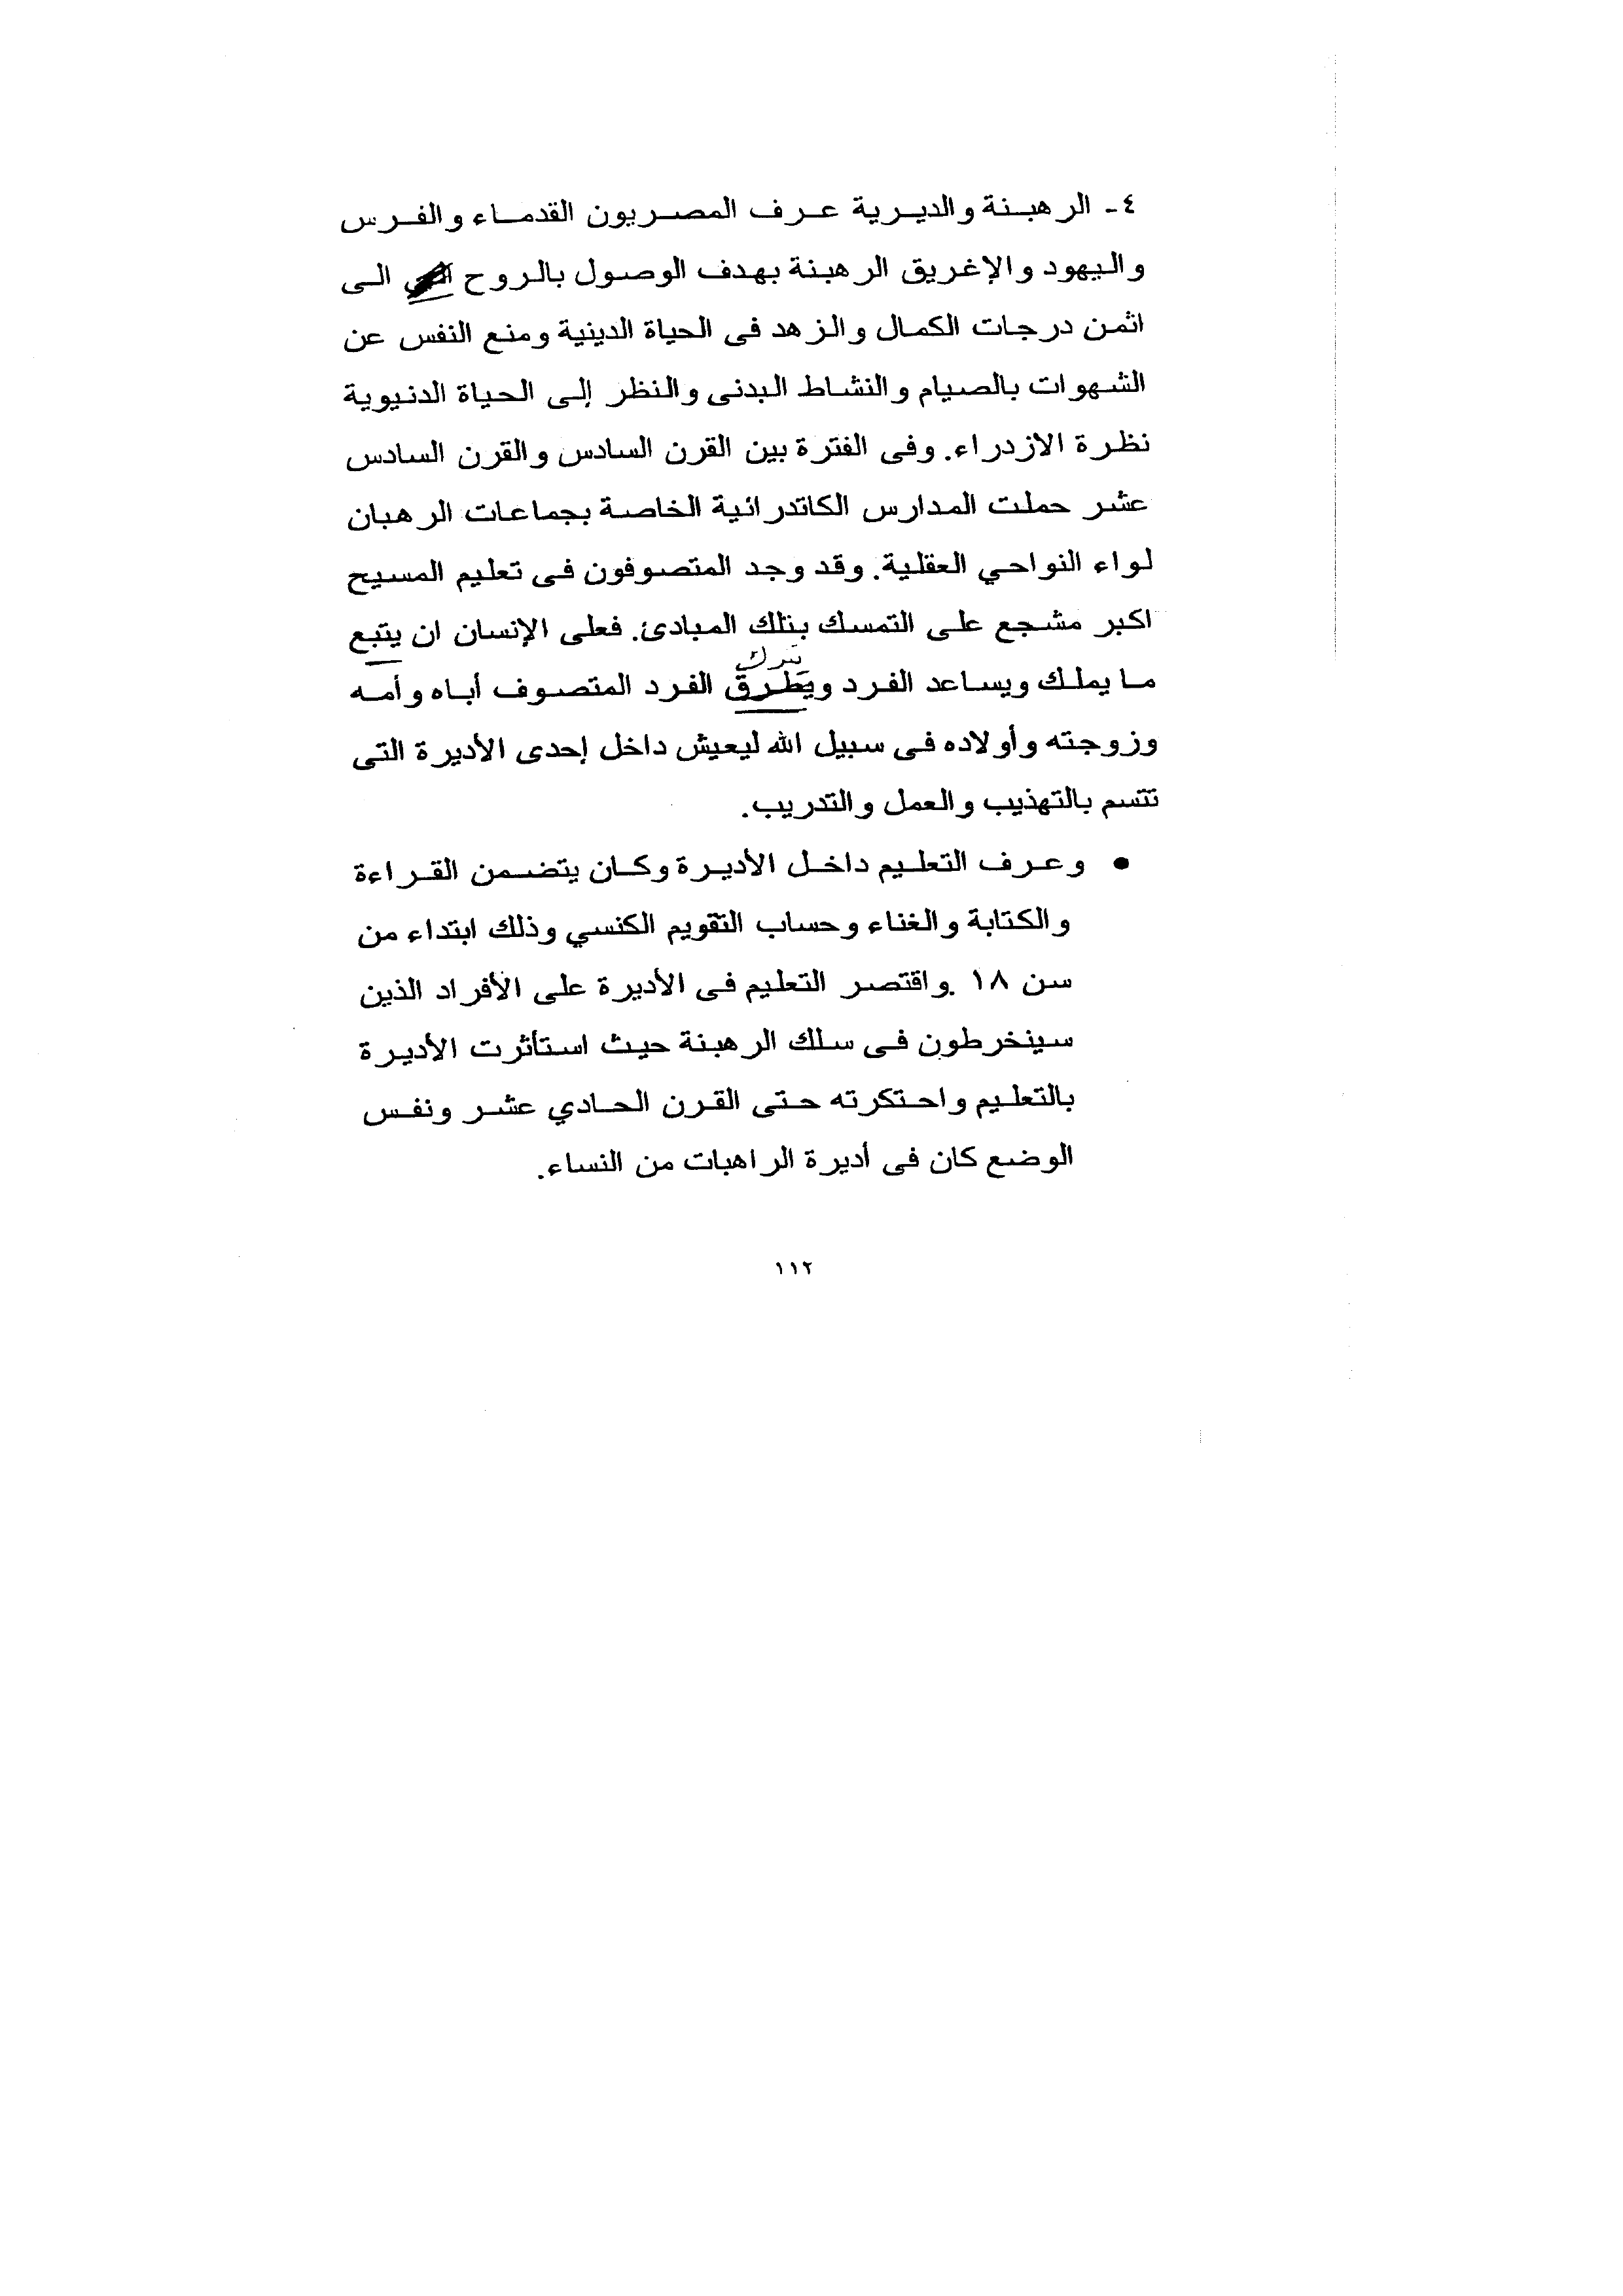 ٤- الرهبنة والديرية عرف المصريون القدماء والفرس
واليهود والإغريق الرهبنة بهدف الوصول بالروح الى
اثمن درجات الكمال والزهد فى الحياة الدينية ومنع النفس عن
الشهوات بالصيام والنشاط البدنى والنظر إلى الحياة الدنيوية
نظرة الازدراء. وفى الفترة بين القرن السادس والقرن السادس
عشر حملت المدارس الكاتدرائية الخاصة بجماعات الرهبان
لواء النواحي العقلية. وقد وجد المتصوفون فى تعليم المسيح
اكبر مشجع على التمسك بتلك المبادئ. فعلى الإنسان ان يتبع
يترك
ما يملك ويساعد الفرد ويطرق الفرد المتصوف أباه وأمه
وزوجته وأولاده فى سبيل الله ليعيش داخل إحدى الأديرة التى
تتسم بالتهذيب والعمل والتدريب.
• وعرف التعليم داخل الأديرة وكان يتضمن القراءة
والكتابة والغناء وحساب التقويم الكنسي وذلك ابتداء من
سن ١٨ .واقتصر التعليم فى الأديرة على الأفراد الذين
سينخرطون فى سلك الرهبنة حيث استأثرت الأديرة
بالتعليم واحتكرته حتى القرن الحادي عشر ونفس
الوضع كان فى أديرة الراهبات من النساء.
١١٢